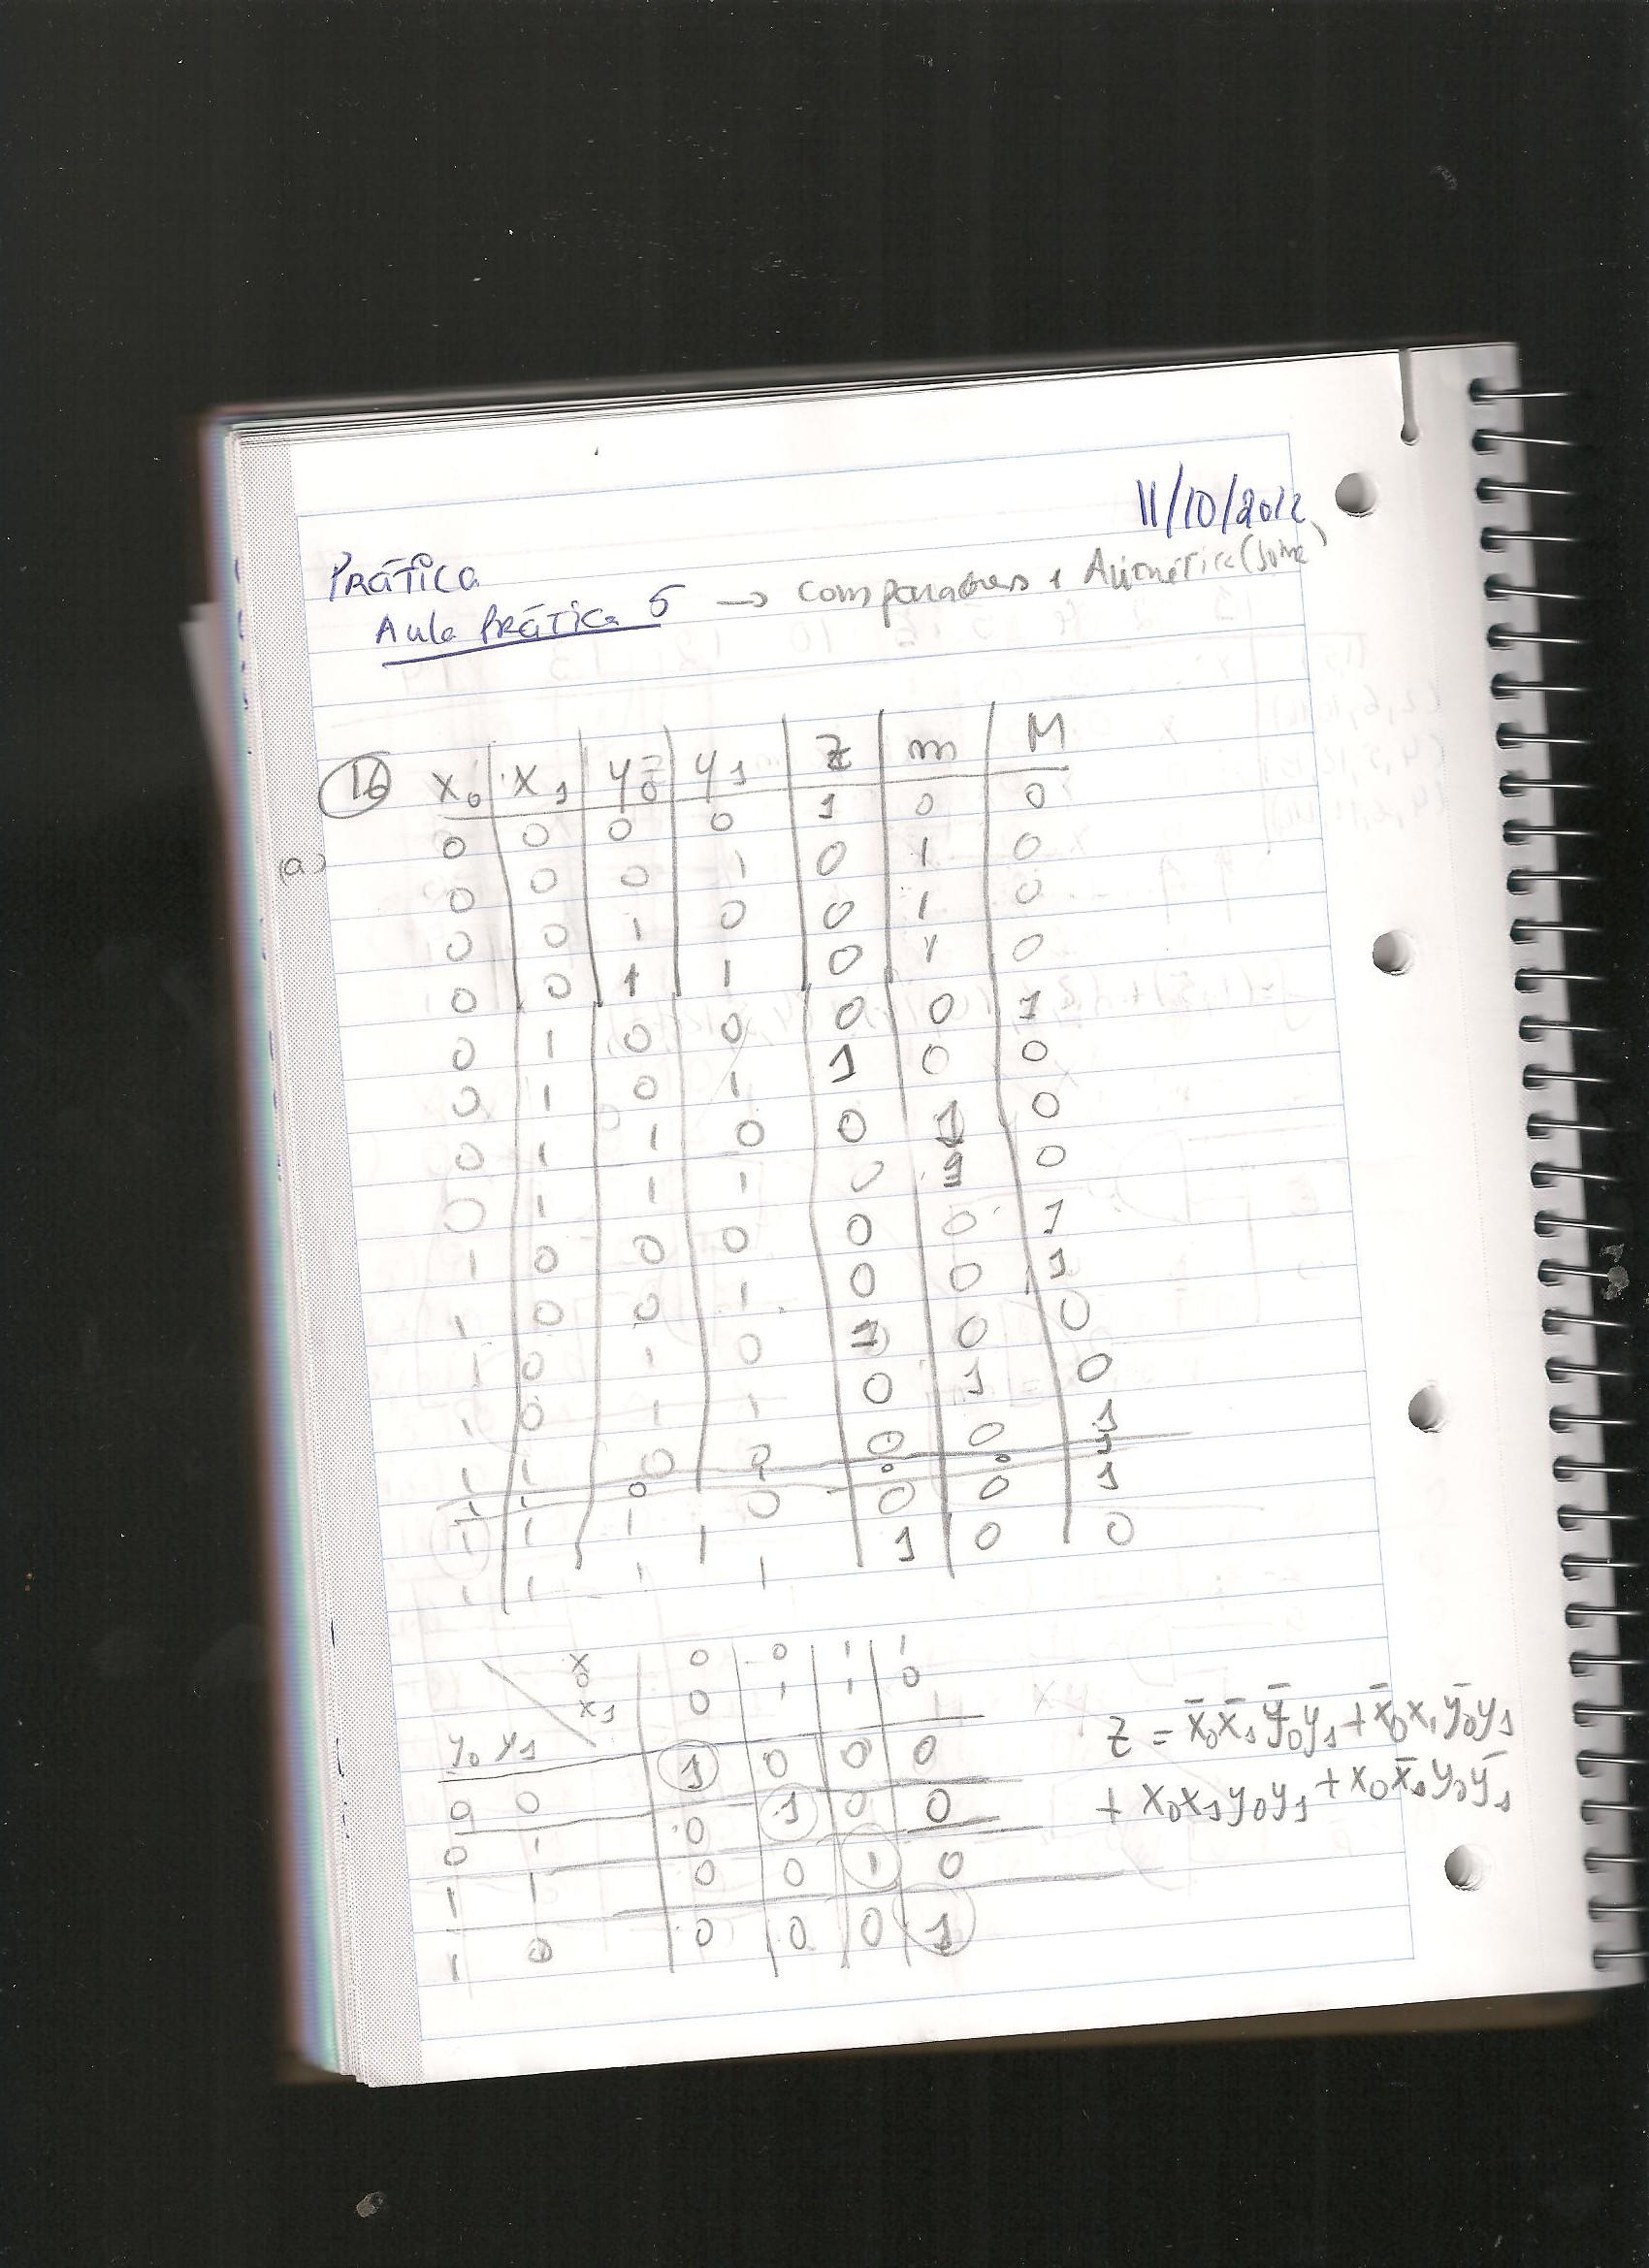 11/10/2012
PRÁTICA
Aula PRÁTICA 5 → Comparadores + Aritmética (Soma)
16 x₀ x₁ y₀ y₁ z m M
(a) 0 0 0 0 1 0 0
0 0 0 1 0 1 0
0 0 1 0 0 1 0
0 0 1 1 0 1 0
0 1 0 0 0 0 1
0 1 0 1 1 0 0
0 1 1 0 0 1 0
0 1 1 1 0 1 0
1 0 0 0 0 0 1
1 0 0 1 0 0 1
1 0 1 0 1 0 0
1 0 1 1 0 1 0
1 1 0 0 0 0 1
1 1 0 1 0 0 1
1 1 1 0 0 0 1
1 1 1 1 1 0 0
x₀ 0 0 1 1
x₁ 0 1 1 0
y₀ y₁
0 0 1 0 0 0
0 1 0 1 0 0
1 1 0 0 1 0
1 0 0 0 0 1
z = x̄₀x̄₁ȳ₀y₁ + x̄₀x₁ȳ₀y₁
+ x₀x₁y₀y₁ + x₀x̄₁y₀ȳ₁